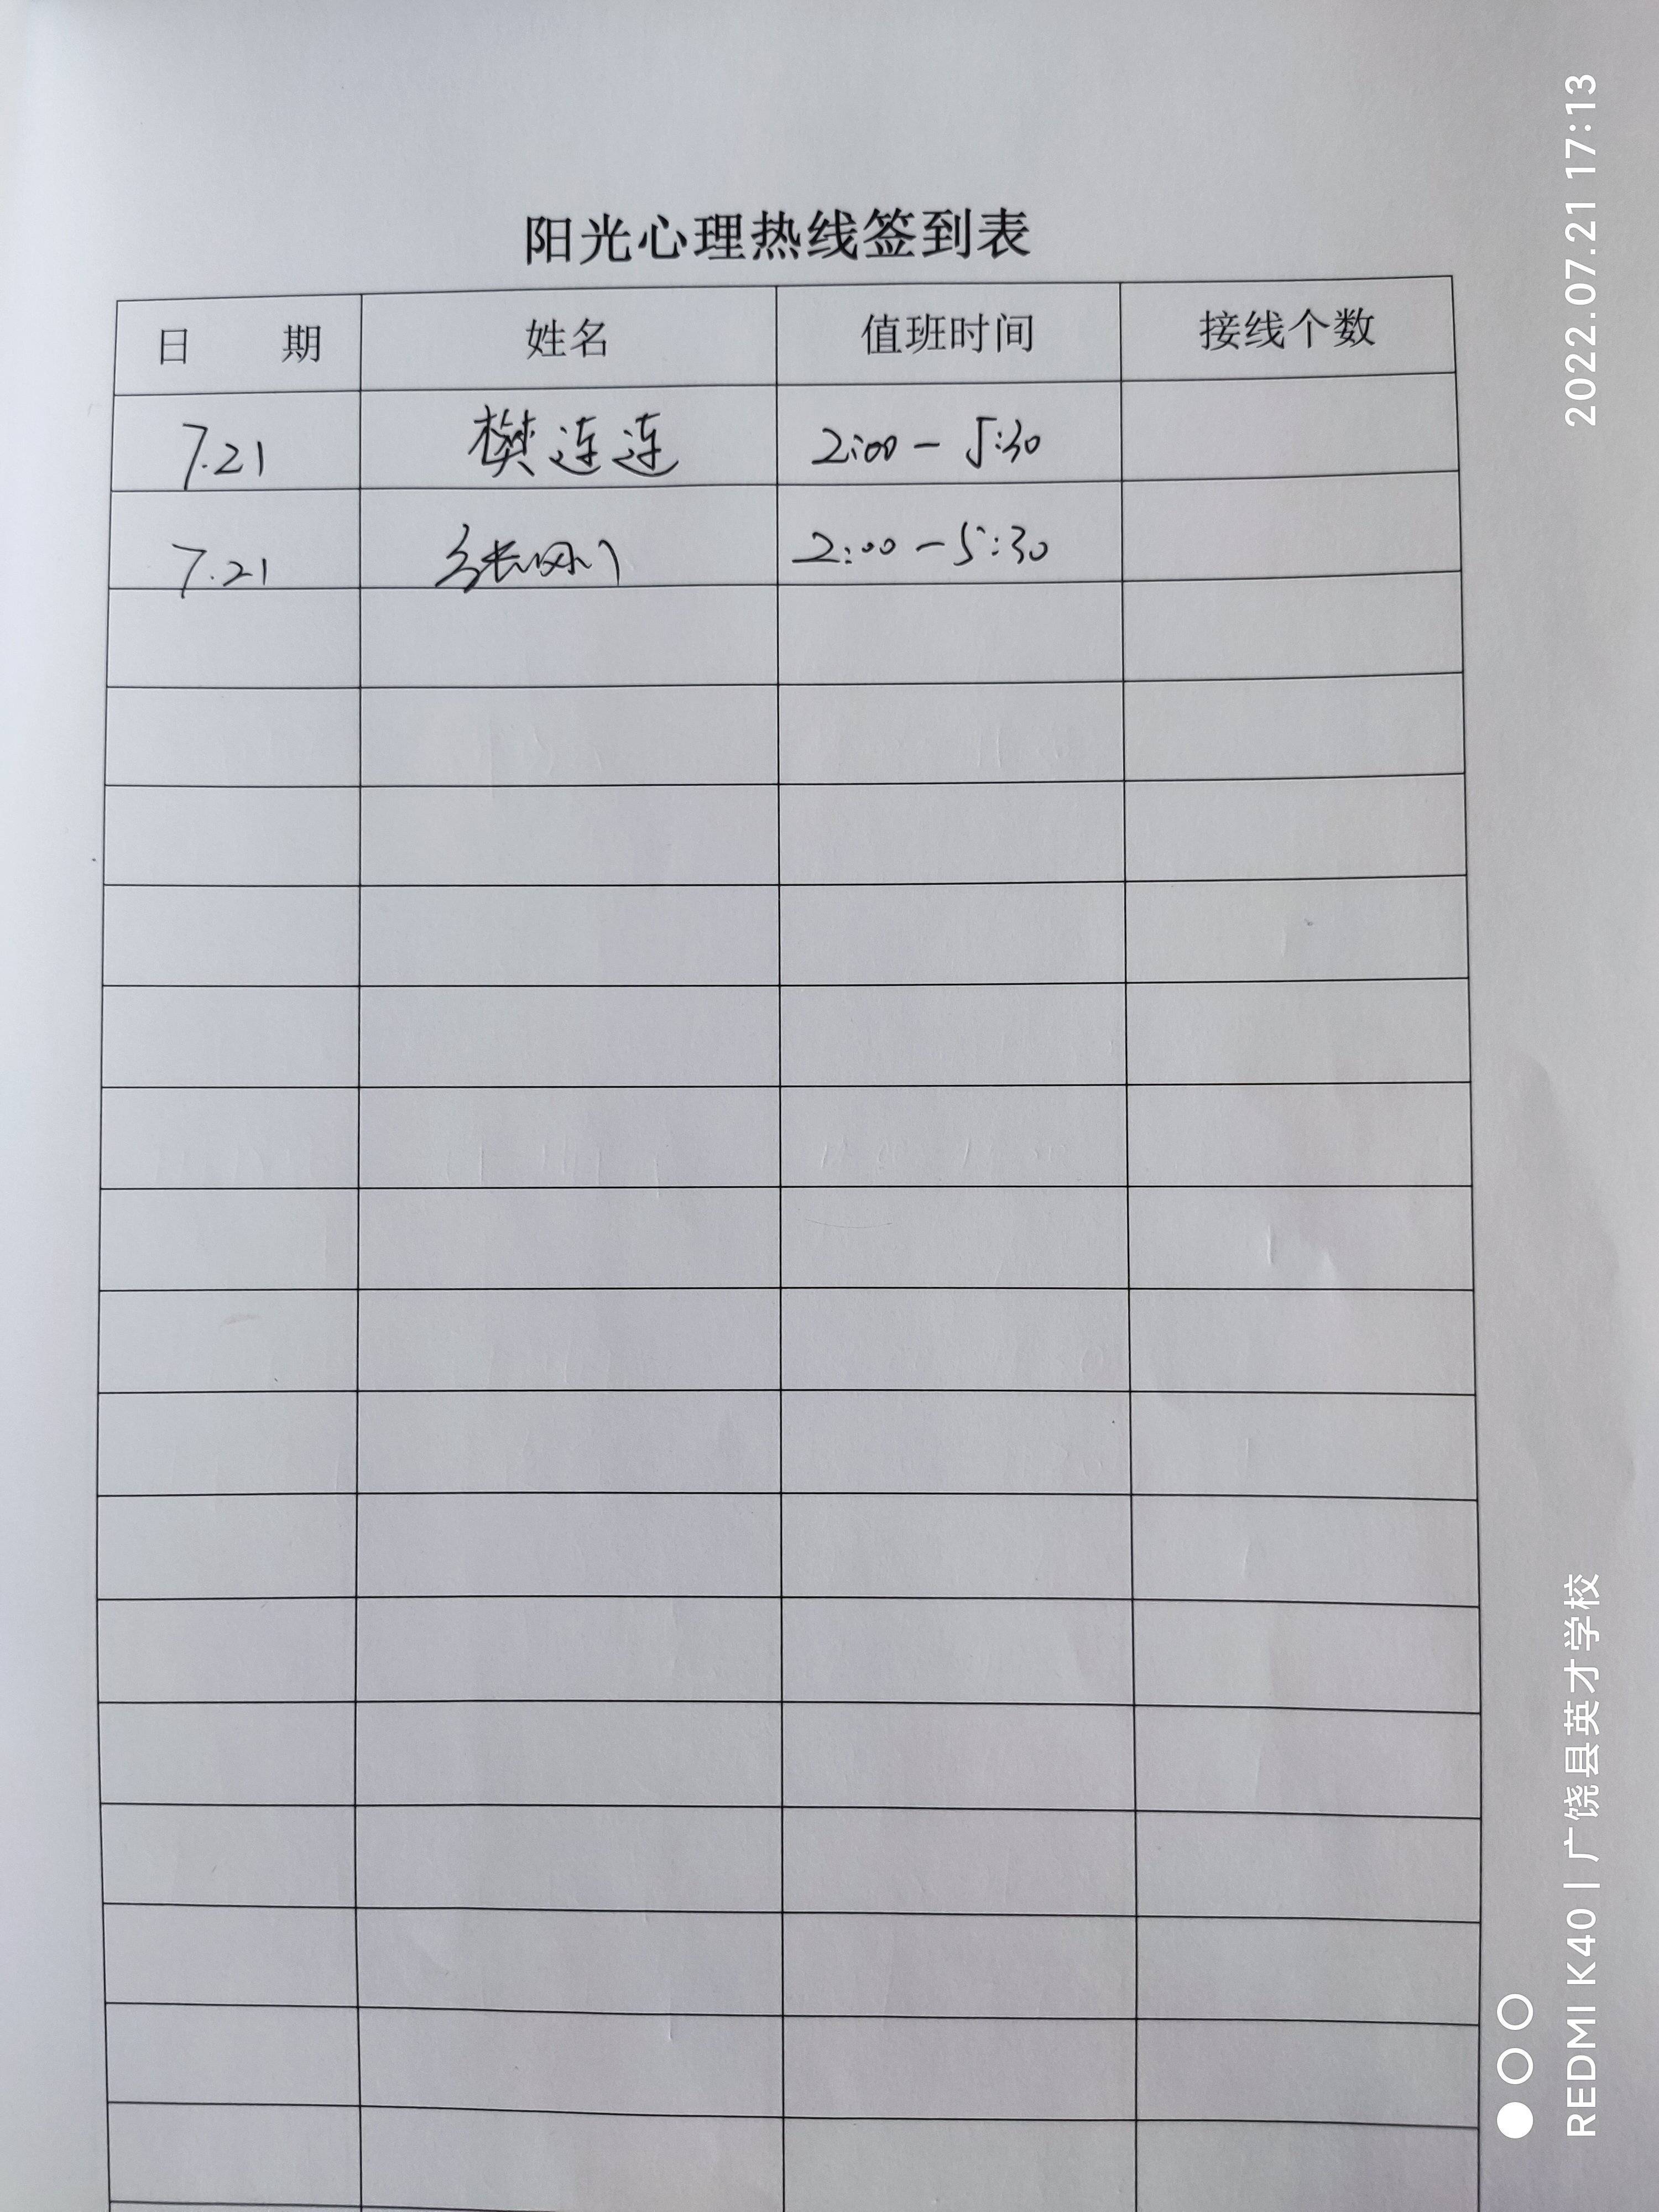 阳光心理热线签到表
日 期 姓名 值班时间 接线个数
7.21 樊连连 2:00-5:30
7.21 张 2:00-5:30
2022.07.21 17:13
REDMI K40 | 广饶县英才学校